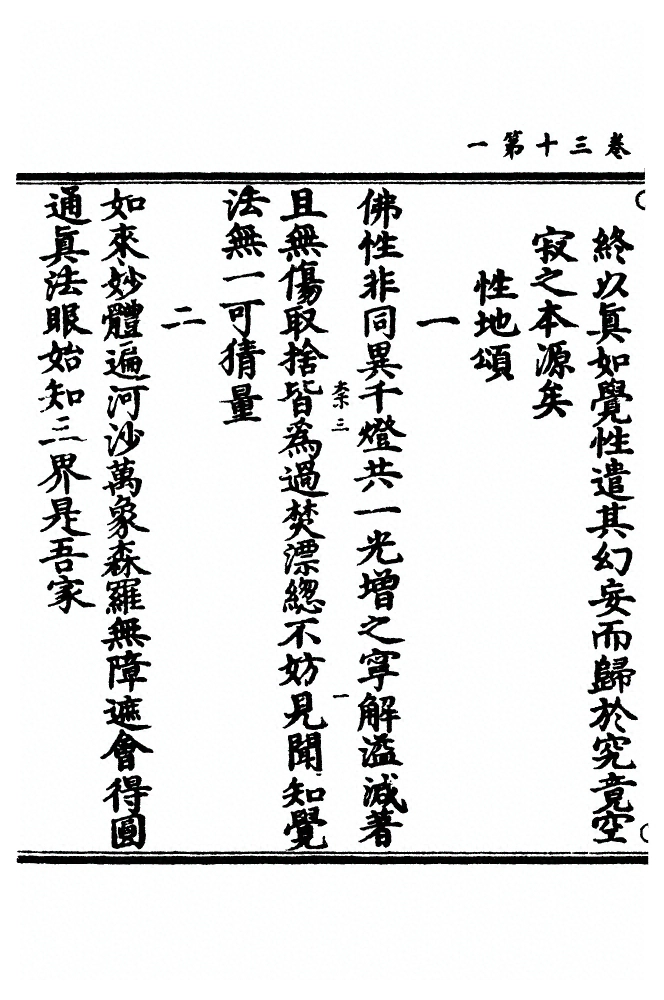 卷三十第一
終以真如覺性遣其幻妄而歸於究竟空
寂之本源矣
性地頌
一
佛性非同異千燈共一光增之寧解溢減著
且無傷取捨皆為過焚漂緫不妨見聞知覺
法無一可猜量
二
如來妙體遍河沙萬象森羅無障遮會得圓
通真法眼始知三界是吾家